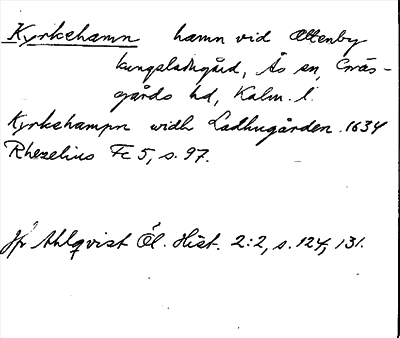 Kyrkehamn hamn vid Ottenby
kungsladugård, Ås sn, Gräs-
gårds hd, Kalm. l.
Kyrkehampn widh Ladhugården. 1634
Rhezelius Fc 5, s. 97.
Jfr Ahlqvist Öl. Hist. 2:2, s. 124, 131.